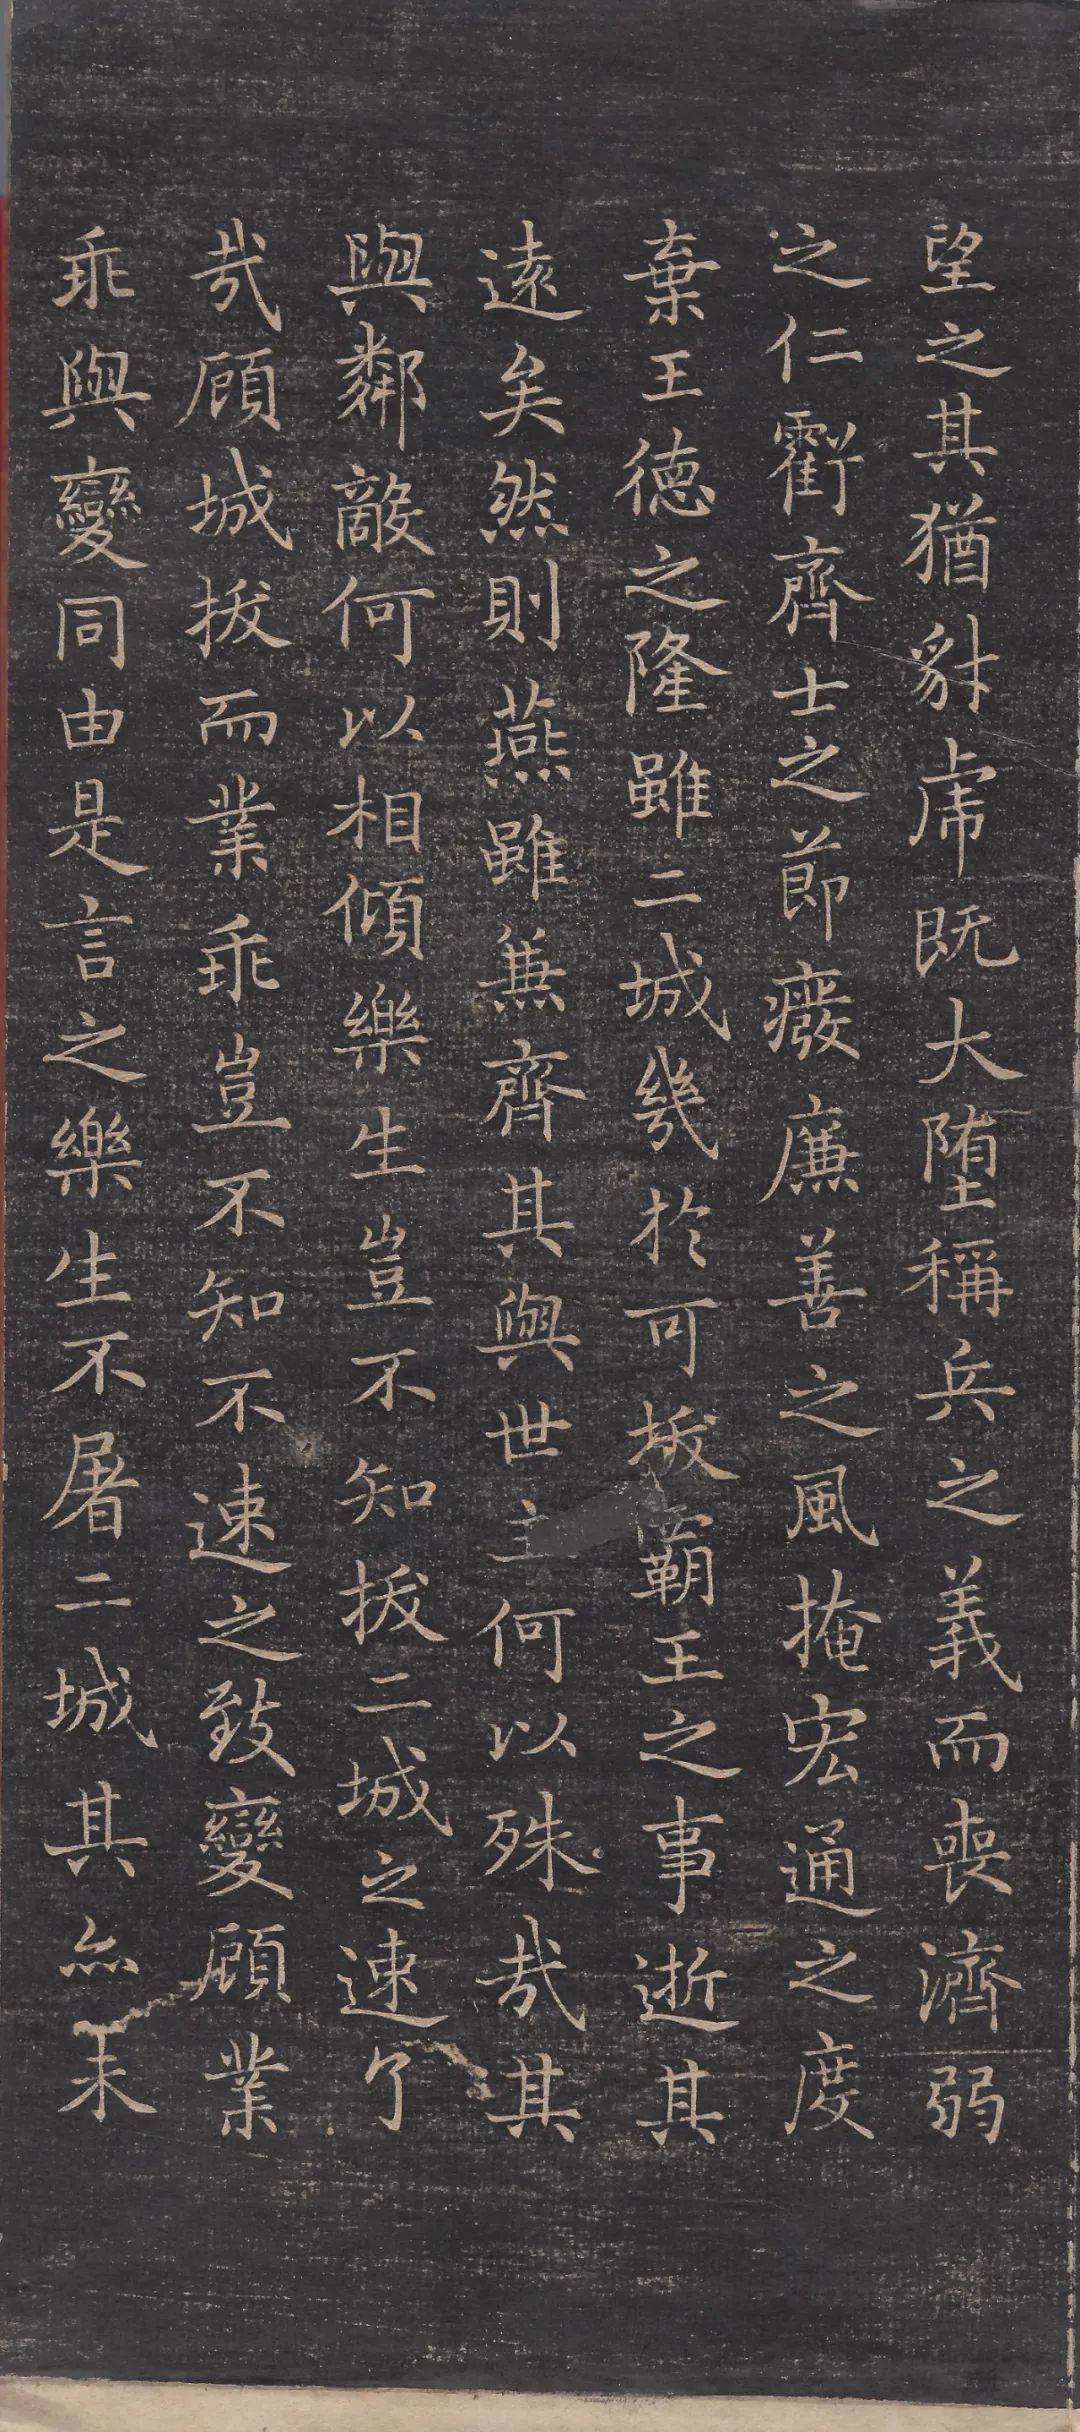 望之其猶豺虎既大堕稱兵之義而喪濟弱
之仁虧齊士之節癈廉善之風掩宏通之度
棄王德之隆雖二城幾於可拔霸王之事逝其
遠矣然則燕雖兼齊其與世主何以殊哉其
與鄰敵何以相傾樂生豈不知拔二城之速了
哉顧城拔而業乖豈不知不速之致變顧業
乖與變同由是言之樂生不屠二城其亦未